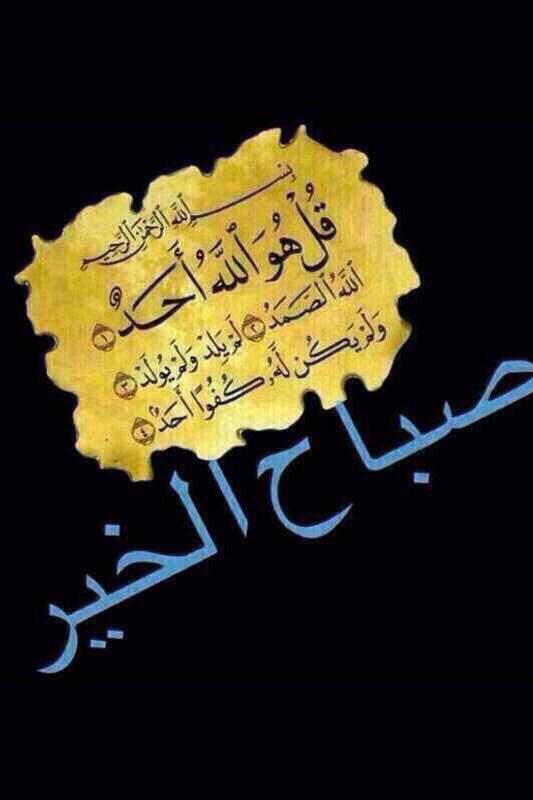 بِسْمِ اللَّهِ الرَّحْمَٰنِ الرَّحِيمِ
قُلْ هُوَ ٱللَّهُ أَحَدٌ ۝١
ٱللَّهُ ٱلصَّمَدُ ۝٢ لَمْ يَلِدْ وَلَمْ يُولَدْ ۝٣
وَلَمْ يَكُن لَّهُۥ كُفُوًا أَحَدٌ ۝٤
صباح الخير